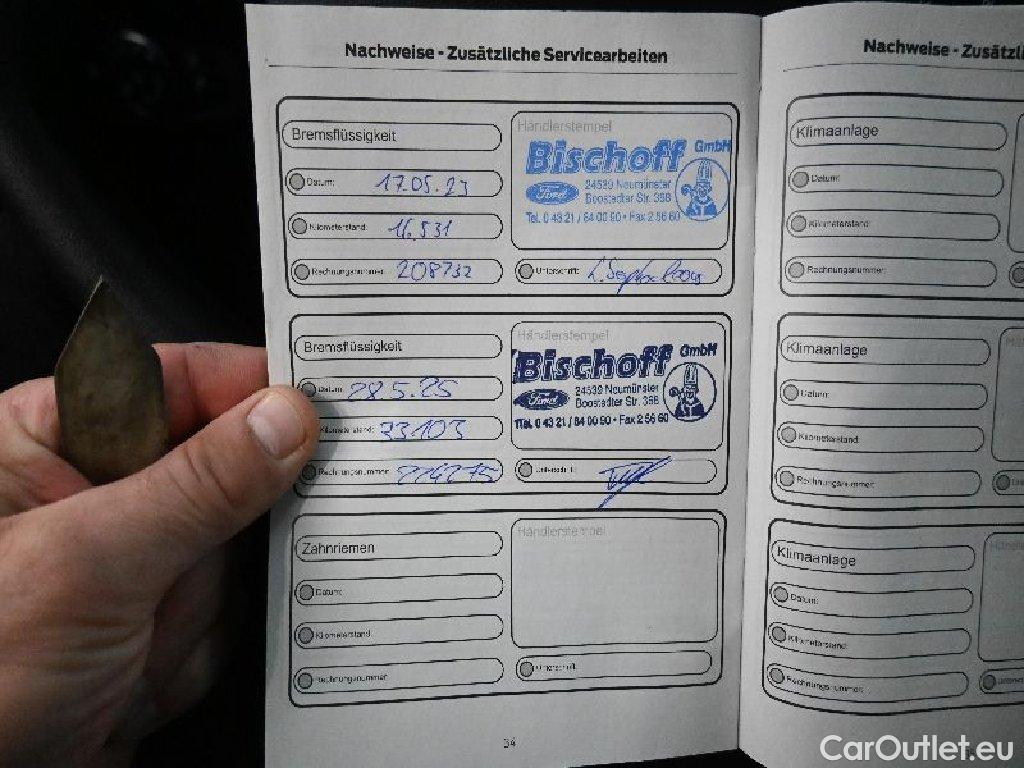 Nachweise - Zusätzliche Servicearbeiten
Bremsflüssigkeit
Händlerstempel
Bischoff GmbH
Ford
24539 Neumünster
Boostedter Str. 358
Tel. 0 43 21 / 84 00 90 • Fax 2 56 60
Datum: 17.05.23
Kilometerstand: 16.531
Rechnungsnummer: 208732
Unterschrift:
Bremsflüssigkeit
Händlerstempel
Bischoff GmbH
Ford
24539 Neumünster
Boostedter Str. 358
Tel. 0 43 21 / 84 00 90 • Fax 2 56 60
Datum: 28.5.25
Kilometerstand: 33103
Rechnungsnummer: 224275
Unterschrift:
Zahnriemen
Händlerstempel
Datum:
Kilometerstand:
Rechnungsnummer:
Unterschrift:
34
Nachweise - Zusätzli
Klimaanlage
Datum:
Kilometerstand:
Rechnungsnummer:
Klimaanlage
Datum:
Kilometerstand:
Rechnungsnummer:
Klimaanlage
Datum:
Kilometerstand:
Rechnungsnummer:
CarOutlet.eu